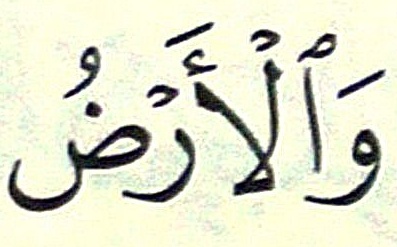 وَٱلْأَرْضُ